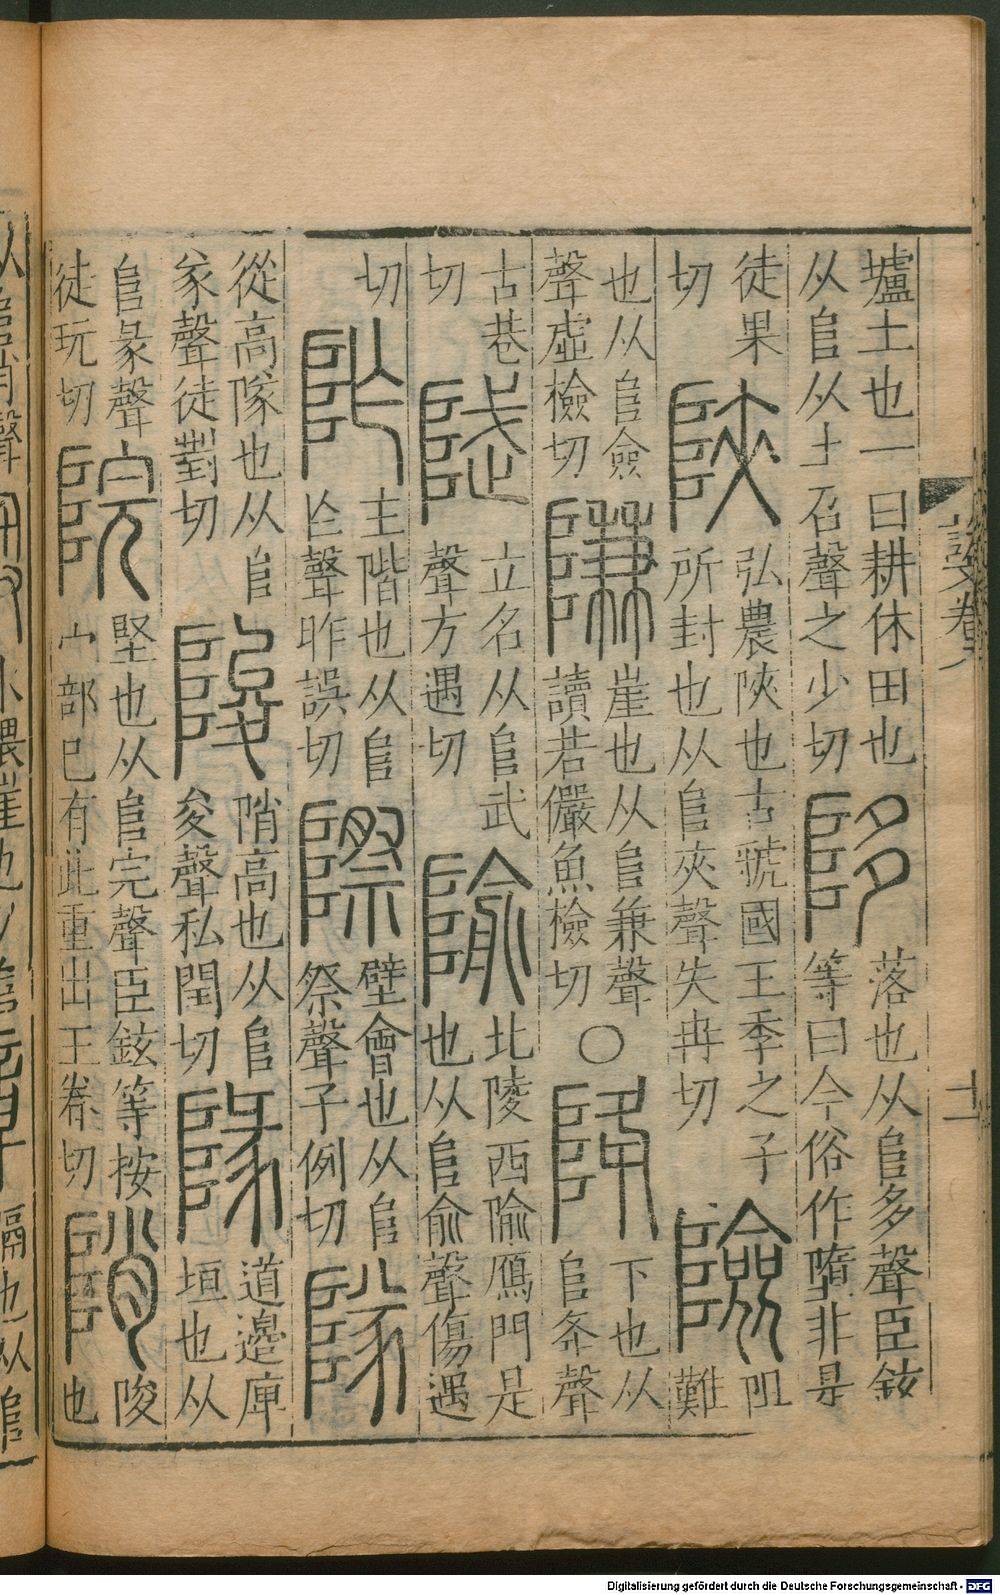 壚土也一曰耕休田也
从𨸏从土召聲之少切
陊
落也从𨸏多聲臣鉉
等曰今俗作墮非是
徒果
切
陝
弘農陝也古虢國王季之子
所封也从𨸏夾聲失冉切
險
阻
難
也从𨸏僉
聲虛檢切
隒
崖也从𨸏兼聲
讀若儼魚檢切
○
降
下也从
𨸏夅聲
古巷
切
陚
立名从𨸏武
聲方遇切
隃
北陵西隃鴈門是
也从𨸏俞聲傷遇
切
阼
主階也从𨸏
聲昨誤切
際
壁會也从𨸏
祭聲子例切
隊
從高隊也从𨸏
㒸聲徒對切
陖
陗高也从𨸏
夋聲私閏切
道邊庳
垣也从
𨸏彖聲
徒玩切
院
堅也从𨸏完聲臣鉉等按
宀部已有此重出王眷切
陗
陖
也
Digitalisierung gefördert durch die Deutsche Forschungsgemeinschaft - DFG